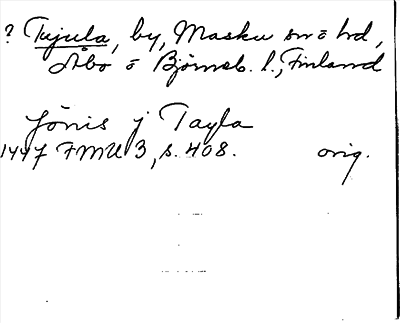 ? Tujula, by, Masku sn o hd,
Åbo o Björneb. l., Finland
Jönis j Tayla
1447 FMU 3, s. 408. orig.